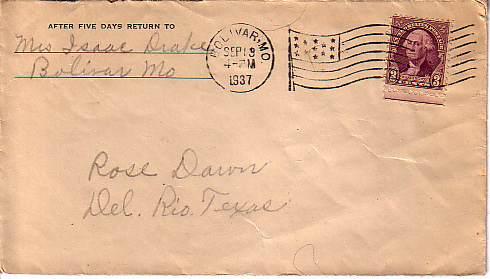 AFTER FIVE DAYS RETURN TO
Mrs Isaac Drake
Bolivar Mo
BOLIVAR, MO.
SEP 9
4-PM
1937
3 3
Rose Dawn
Del. Rio. Texas